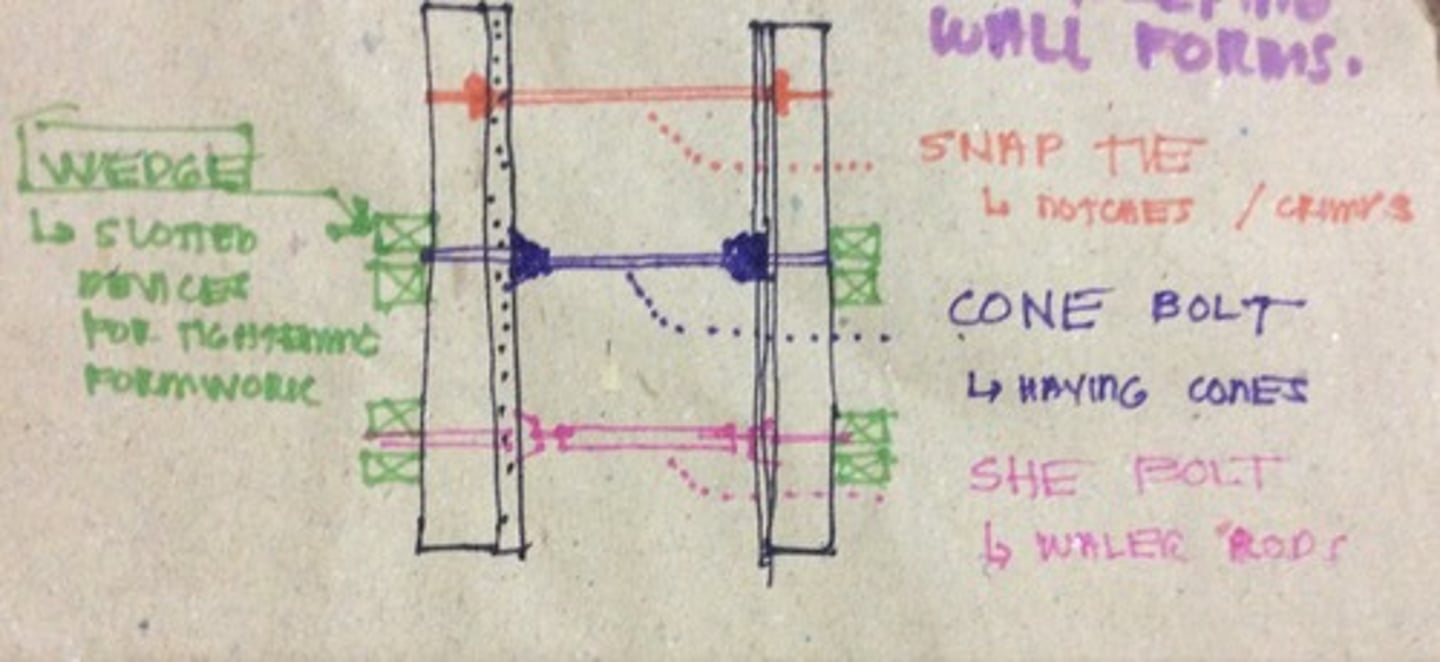 WALL FORMS.
SNAP TIE
↳ NOTCHES / CRIMPS
WEDGE
↳ SLOTTED
DEVICES
FOR TIGHTENING
FORMWORK
CONE BOLT
↳ HAVING CONES
SHE BOLT
↳ WALER RODS